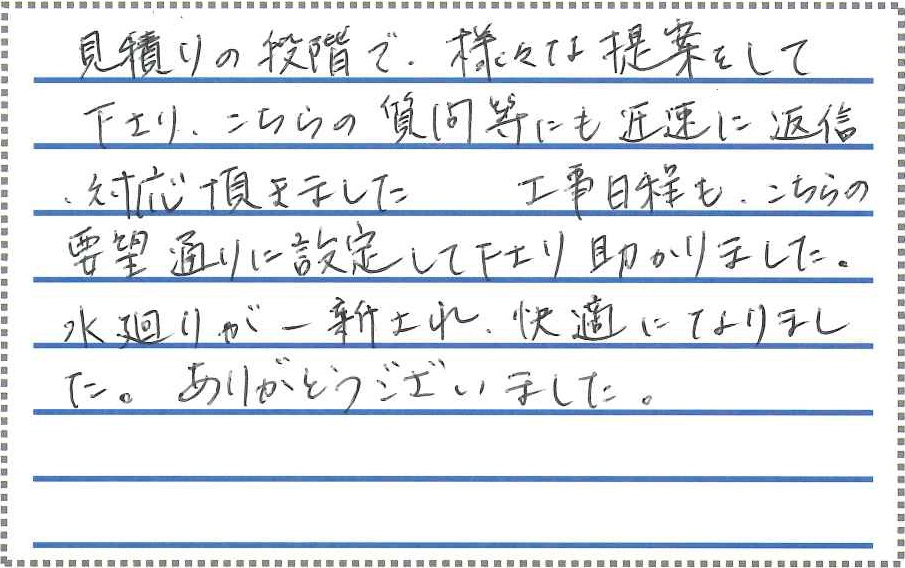 見積りの段階で、様々な提案をして
下さり、こちらの質問等にも迅速に返信
、対応頂きました　工事日程も、こちらの
要望通りに設定して下さり助かりました。
水廻りが一新され、快適になりまし
た。ありがとうございました。